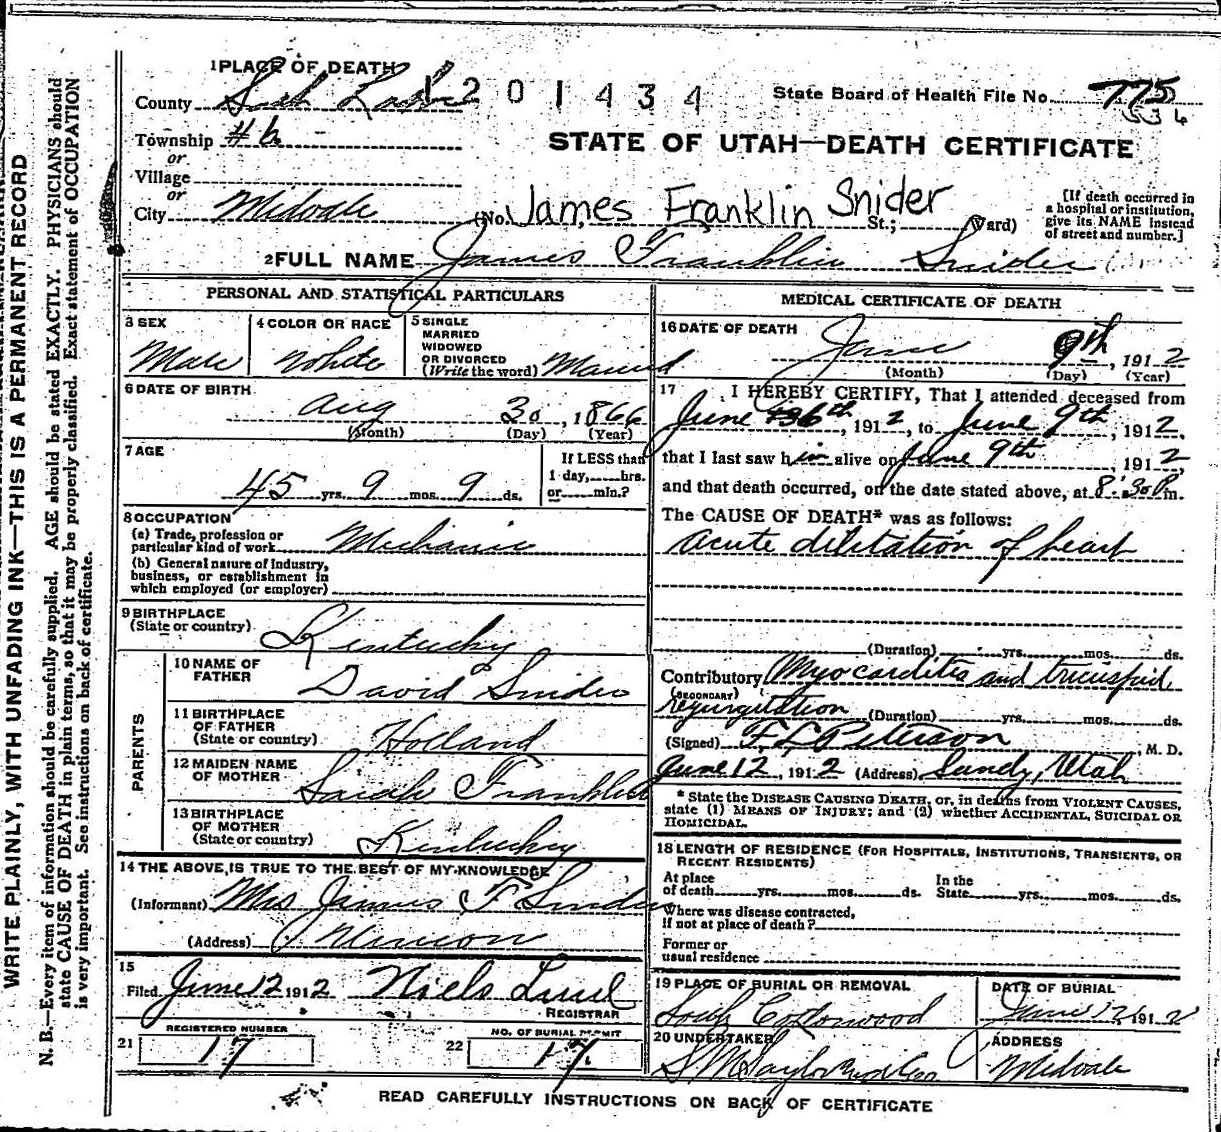 WRITE PLAINLY, WITH UNFADING INK—THIS IS A PERMANENT RECORD
N. B.—Every item of information should be carefully supplied. AGE should be stated EXACTLY. PHYSICIANS should
state CAUSE OF DEATH in plain terms, so that it may be properly classified. Exact statement of OCCUPATION
is very important. See instructions on back of certificate.
1 PLACE OF DEATH
County Salt Lake
1201434
State Board of Health File No. 775
534
Township #6
or
Village
or
City Midvale
STATE OF UTAH—DEATH CERTIFICATE
(No. James Franklin Snider St.; Ward)
[If death occurred in
a hospital or institution,
give its NAME instead
of street and number.]
2 FULL NAME James Franklin Snider
PERSONAL AND STATISTICAL PARTICULARS
3 SEX
Male
4 COLOR OR RACE
White
5 SINGLE
MARRIED
WIDOWED
OR DIVORCED
(Write the word) Married
6 DATE OF BIRTH
Aug 30, 1866
(Month) (Day) (Year)
7 AGE
45 yrs. 9 mos. 9 ds.
If LESS than
1 day, hrs.
or min.?
8 OCCUPATION
(a) Trade, profession or
particular kind of work Mechanic
(b) General nature of industry,
business, or establishment in
which employed (or employer)
9 BIRTHPLACE
(State or country) Kentucky
PARENTS
10 NAME OF
FATHER David Snider
11 BIRTHPLACE
OF FATHER
(State or country) Holland
12 MAIDEN NAME
OF MOTHER Sarah Franklin
13 BIRTHPLACE
OF MOTHER
(State or country) Kentucky
14 THE ABOVE IS TRUE TO THE BEST OF MY KNOWLEDGE
(Informant) Mrs James F Snider
(Address)
15
Filed June 12 1912 Niels Lind
REGISTRAR
REGISTERED NUMBER
21 17
NO. OF BURIAL PERMIT
22 17
MEDICAL CERTIFICATE OF DEATH
16 DATE OF DEATH
June 9th, 1912
(Month) (Day) (Year)
17 I HEREBY CERTIFY, That I attended deceased from
June 6th, 1912, to June 9th, 1912,
that I last saw him alive on June 9th, 1912,
and that death occurred, on the date stated above, at 8:30 P.m.
The CAUSE OF DEATH* was as follows:
acute diletation of heart
(Duration) yrs. mos. ds.
Contributory Myocarditis and tricuspid
(SECONDARY)
regurgitation (Duration) yrs. mos. ds.
(Signed) F. L. Peterson, M. D.
June 12, 1912 (Address) Sandy, Utah
* State the DISEASE CAUSING DEATH, or, in deaths from VIOLENT CAUSES,
state (1) MEANS OF INJURY; and (2) whether ACCIDENTAL, SUICIDAL OR
HOMICIDAL.
18 LENGTH OF RESIDENCE (FOR HOSPITALS, INSTITUTIONS, TRANSIENTS, OR
RECENT RESIDENTS)
At place
of death yrs. mos. ds.
In the
State yrs. mos. ds.
Where was disease contracted,
If not at place of death?
Former or
usual residence
19 PLACE OF BURIAL OR REMOVAL
South Cottonwood
DATE OF BURIAL
June 12 1912
20 UNDERTAKER
S M Taylor and Co
ADDRESS
Midvale
READ CAREFULLY INSTRUCTIONS ON BACK OF CERTIFICATE